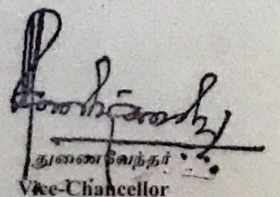 துணைவேந்தர்
Vice-Chancellor